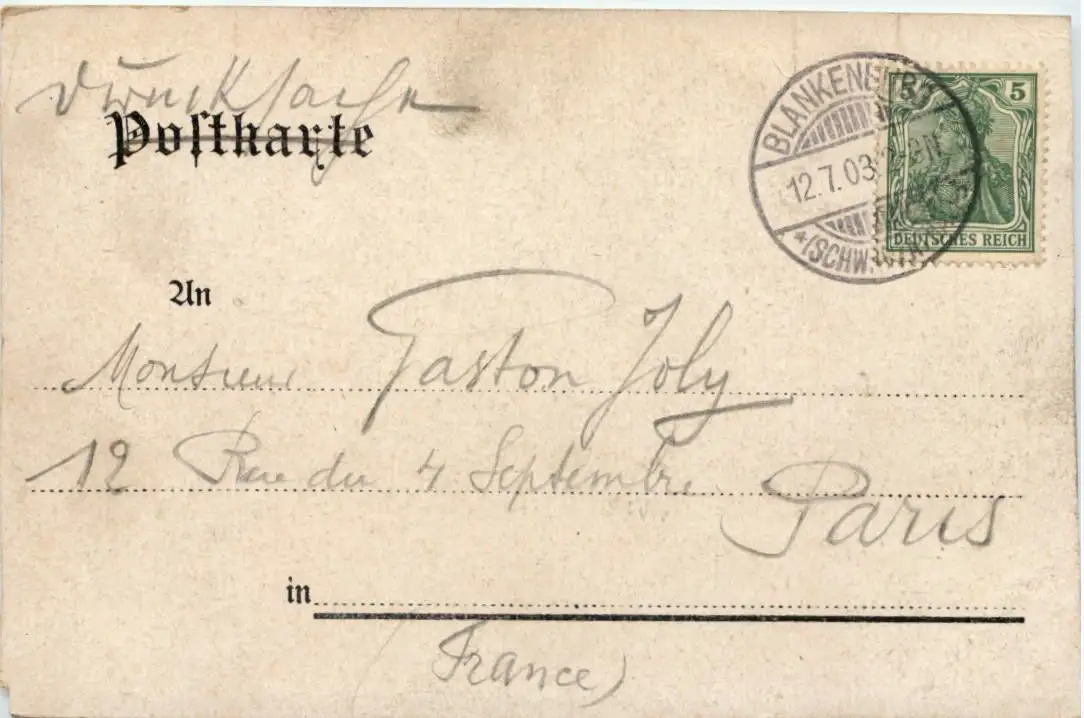 Drucksache
Postkarte
BLANKENBURG
12.7.03
* (SCHW.
5
DEUTSCHES REICH
An
Monsieur Gaston Joly
12 Rue du 4 Septembre
Paris
in
(France)